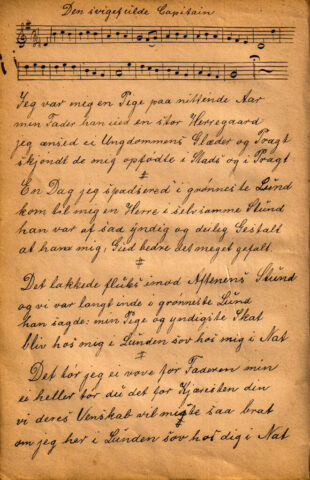 Den svigefulde Capitain
Jeg var mig en Pige paa nittende Aar
min Fader han eied en stor Herregaard
jeg ansed ei Ungdommens Glæder og Pragt
skjøndt de mig opfødte i Stads og i Pragt
En Dag jeg spadsered i grønneste Lund
kom til mig en Herre i selvsamme Stund
han var af saa yndig og deilig Gestalt
at han mig, Gud bedre det meget gefalt.
Det lakkede fluks imod Aftenens Stund
og vi var langt inde i grønneste Lund
han sagde: min Pige og yndigste Skat
bliv hos mig i Lunden sov hos mig i Nat
Det tør jeg ei vove for Faderen min
ei heller tør du det for Kjæresten din
vi deres Venskab vil miste saa brat
om jeg her i Lunden sov hos dig i Nat